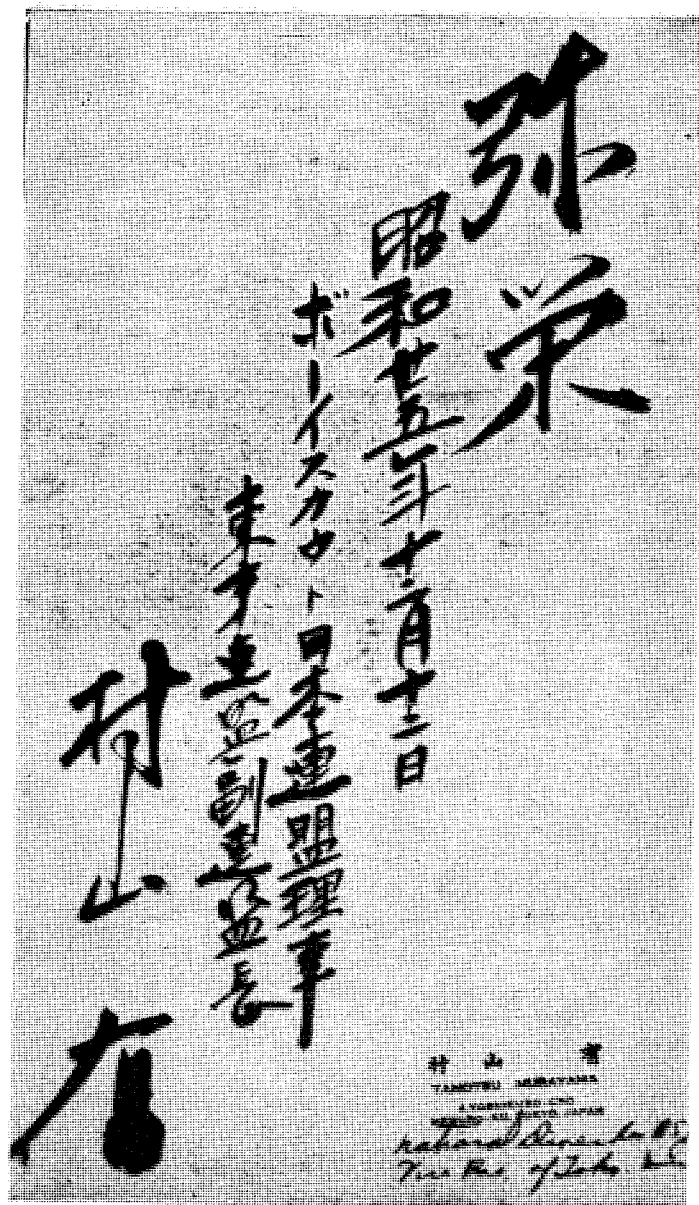 弥栄
昭和廿五年十二月十二日
ボーイスカウト日本連盟理事
東京連盟副連盟長
村山有
村山 有
TAMOTSU MURAYAMA
TOKYO JAPAN
National Director
Vice Pres. of Tokyo